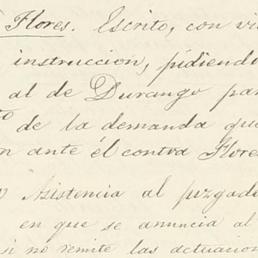 Flores. Escrito, con vi
instruccion, pidiendo
al de Durango par
to de la demanda que
n ante él contra Flore
Asistencia al juzgad
en que se anuncia al
si no remite las actuacion